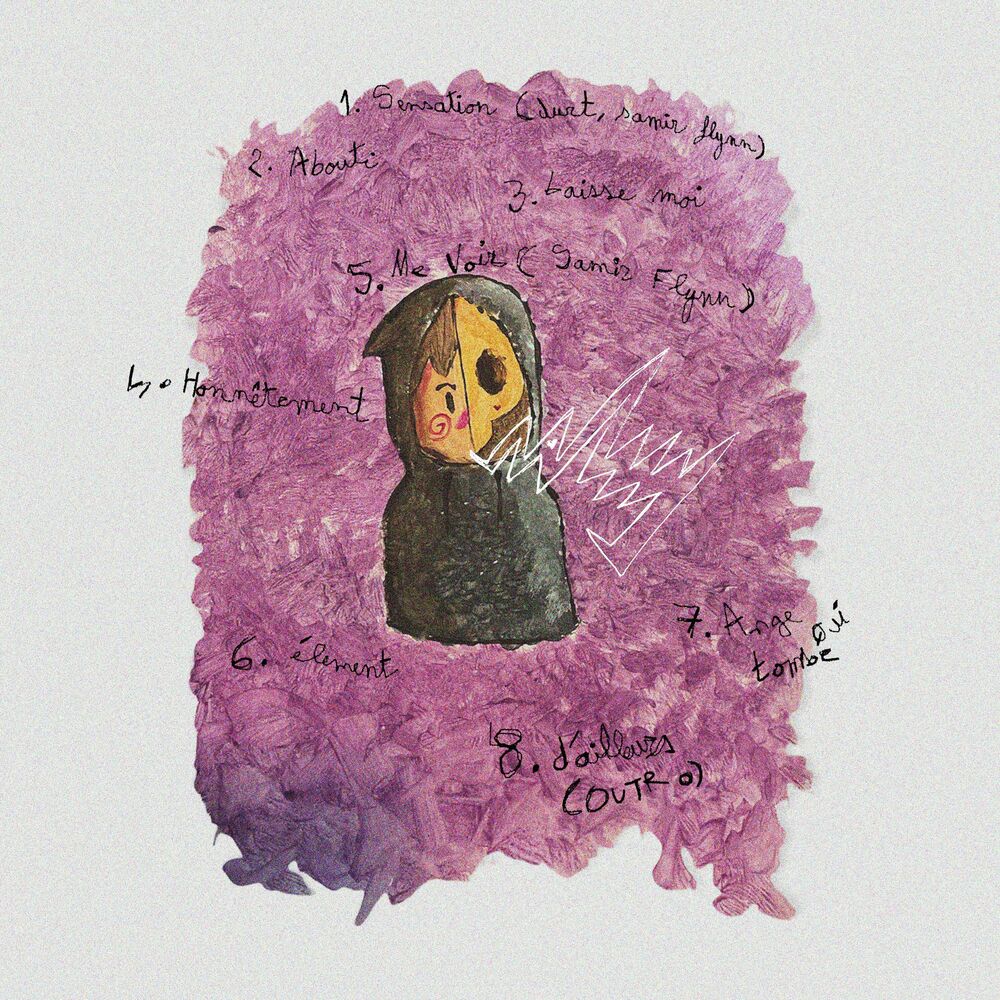 1. Sensation (durt, samir flynn)
2. Abouti
3. Laisse moi
5. Me Voir (Samir Flynn)
4. Honnêtement
6. élement
7. Ange qui
tombe
8. d'ailleurs
(OUTRO)